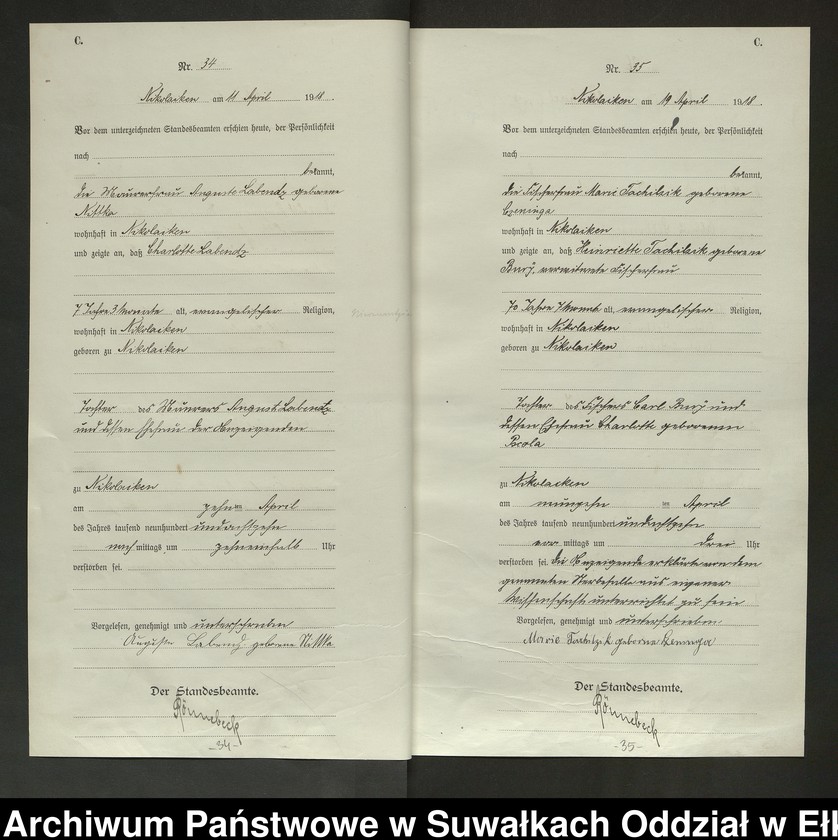 C.
Nr. 34
Nikolaiken am 11 April 1918.
Vor dem unterzeichneten Standesbeamten erschien heute, der Persönlichkeit
nach
bekannt,
die Maurerfrau Auguste Labendz geborene
Nittka
wohnhaft in Nikolaiken
und zeigte an, daß Charlotte Labendz
7 Jahre 3 Monate alt, evangelischer Religion,
wohnhaft in Nikolaiken
geboren zu Nikolaiken
Tochter des Maurers August Labendz
und dessen Ehefrau der Anzeigenden
zu Nikolaiken
am zehnten April
des Jahres tausend neunhundert undachtzehn
nachmittags um zehneinhalb Uhr
verstorben sei.
Vorgelesen, genehmigt und unterschrieben
Auguste Labendz geborene Nittka
Der Standesbeamte.
Rönnebeck
-34-
C.
Nr. 35
Nikolaiken am 19 April 1918.
Vor dem unterzeichneten Standesbeamten erschien heute, der Persönlichkeit
nach
bekannt,
die Fischerfrau Marie geborene
wohnhaft in Nikolaiken
und zeigte an, daß Heinriette geborene
verwitwete Fischerfrau
70 Jahre 7 Monate alt, evangelischer Religion,
wohnhaft in Nikolaiken
geboren zu Nikolaiken
Tochter des Fischers Carl und
dessen Ehefrau Charlotte geborenen
zu Nikolaiken
am neunzehn ten April
des Jahres tausend neunhundert undachtzehn
vor mittags um drei Uhr
verstorben sei. Die Anzeigende erklärte von dem
genannten Sterbefalle aus eigener
Wissenschaft unterrichtet zu sein
Vorgelesen, genehmigt und unterschrieben
Marie geborne
Der Standesbeamte.
Rönnebeck
-35-
Archiwum Państwowe w Suwałkach Oddział w Eł